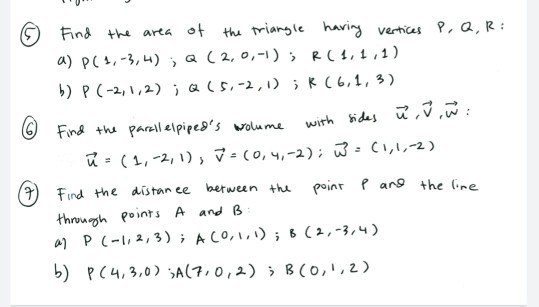 ⑤ Find the area of the triangle having vertices P, Q, R :
a) P(1,-3,4) ; Q (2,0,-1) ; R(1,1,1)
b) P(-2,1,2) ; Q(5,-2,1) ; R(6,1,3)
⑥ Find the parallelpiped's wolume with sides u⃗, v⃗, w⃗ :
u⃗ = (1,-2,1) ; v⃗ = (0,4,-2) ; w⃗ = (1,1,-2)
⑦ Find the distance between the point P and the line
through points A and B :
a) P(-1,2,3) ; A(0,1,1) ; B(2,-3,4)
b) P(4,3,0) ; A(7,0,2) ; B(0,1,2)